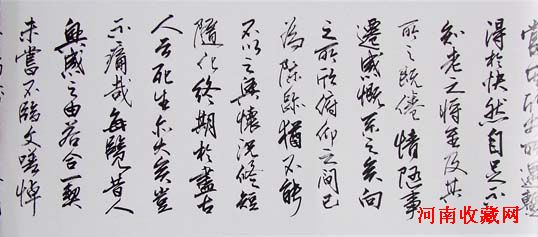 得於快然自足不
知老之將至及其
所之既倦情隨事
遷感慨系之矣向
之所欣俯仰之間已
為陳跡猶不能
不以之興懷況修短
隨化終期於盡古
人云死生亦大矣豈
不痛哉每覽昔人
興感之由若合一契
未嘗不臨文嗟悼
河南收藏网